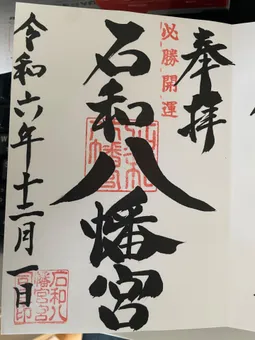 奉拝
必勝開運
石和八幡宮
石和八幡宮
令和六年十二月一日
石和八幡宮之印